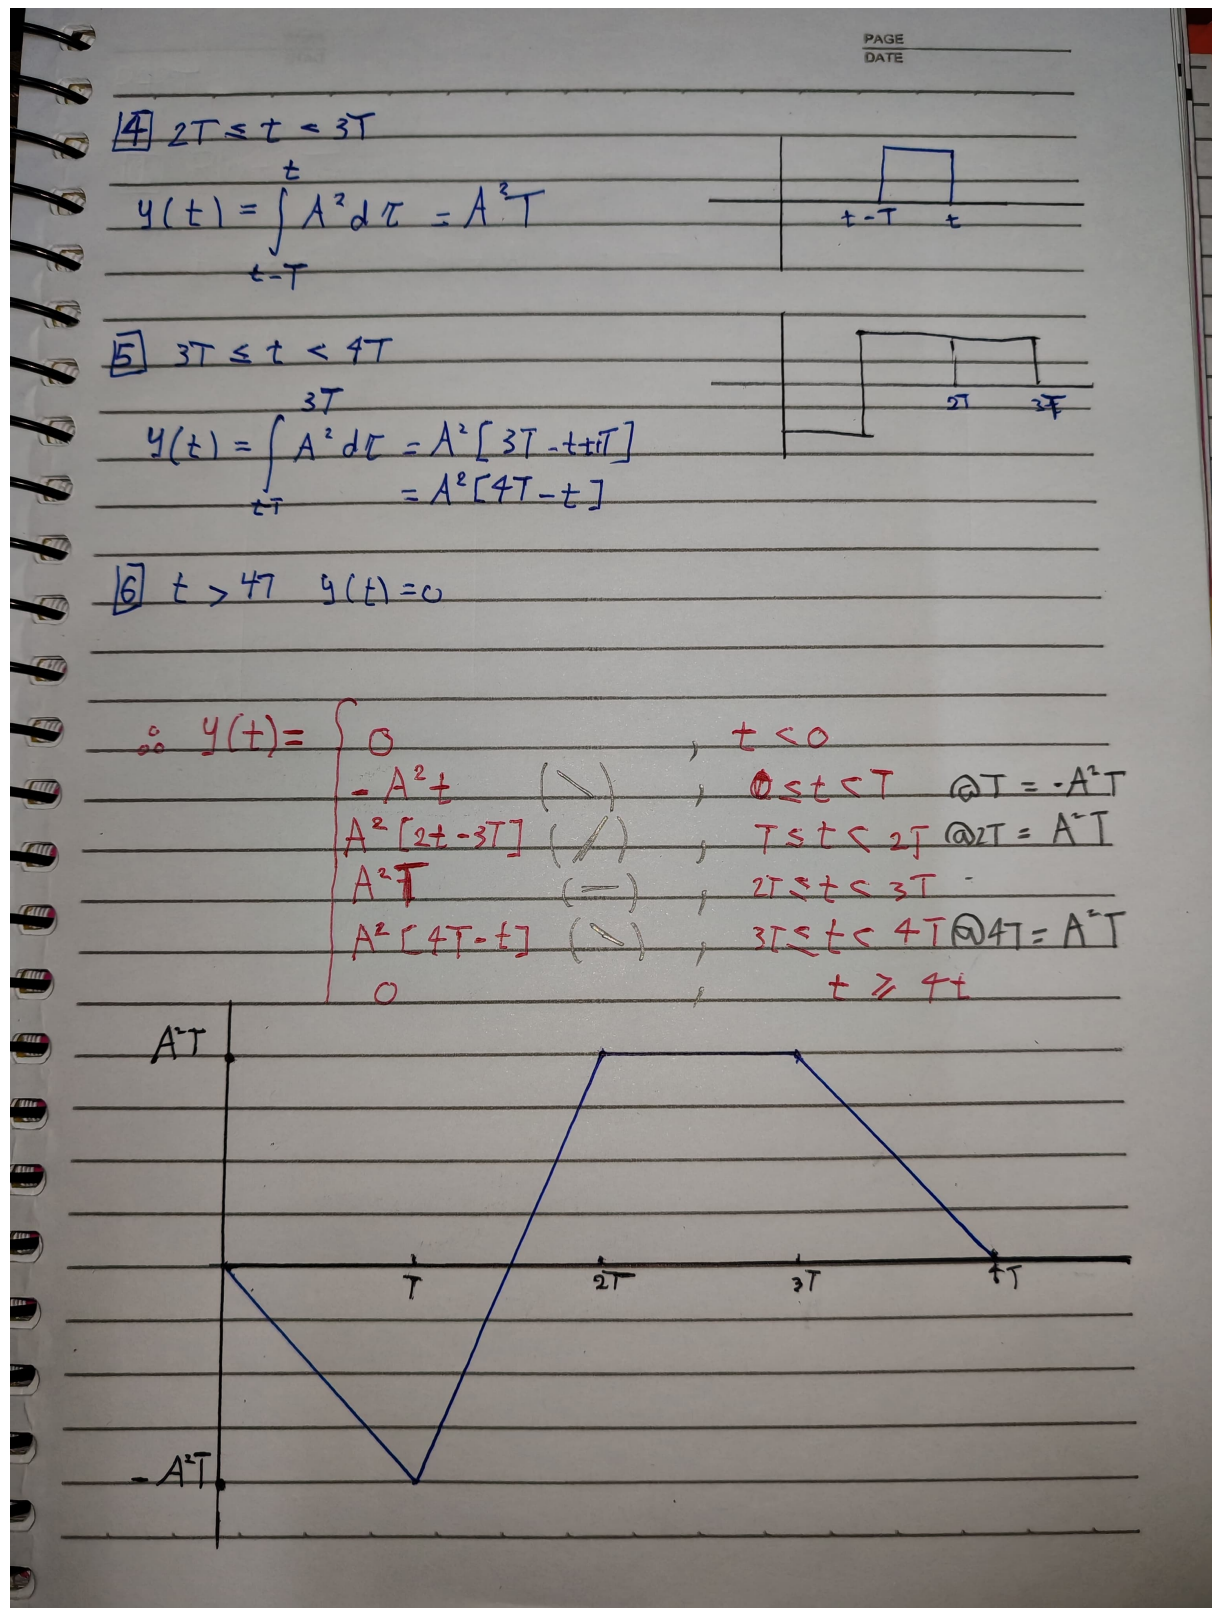 PAGE
DATE
4 2T ≤ t < 3T
t
y(t) = ∫ A² dτ = A²T
t-T
t-T t
5 3T ≤ t < 4T
3T
y(t) = ∫ A² dτ = A² [3T-t+T]
tT = A² [4T-t]
2T 3T
6 t > 4T y(t) = 0
∴ y(t) = { 0 , t < 0
- A²t (\) , 0 ≤ t < T @T = -A²T
A² [2t-3T] (/) , T ≤ t < 2T @2T = A²T
A²T (=) , 2T ≤ t < 3T
A² [4T-t] (\) , 3T ≤ t < 4T @4T = A²T
0 , t ≥ 4t
A²T
T 2T 3T 4T
- A²T